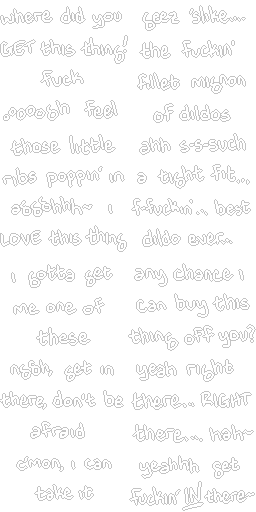 where did you
GET this thing!
fuck
.ooooghh feel
those little
ribs poppin' in
aggghhh~ i
LOVE this thing
i gotta get
me one of
these
nghh, get in
there, don't be
afraid
c'mon, i can
take it
geez 'slike....
the fuckin'
fillet mignon
of dildos
ahh s-s-such
a tight fit...
f-fuckin'.. best
dildo ever..
any chance i
can buy this
thing off you?
yeah right
there... RIGHT
there... hah~
yeahhh get
fuckin' IN there~